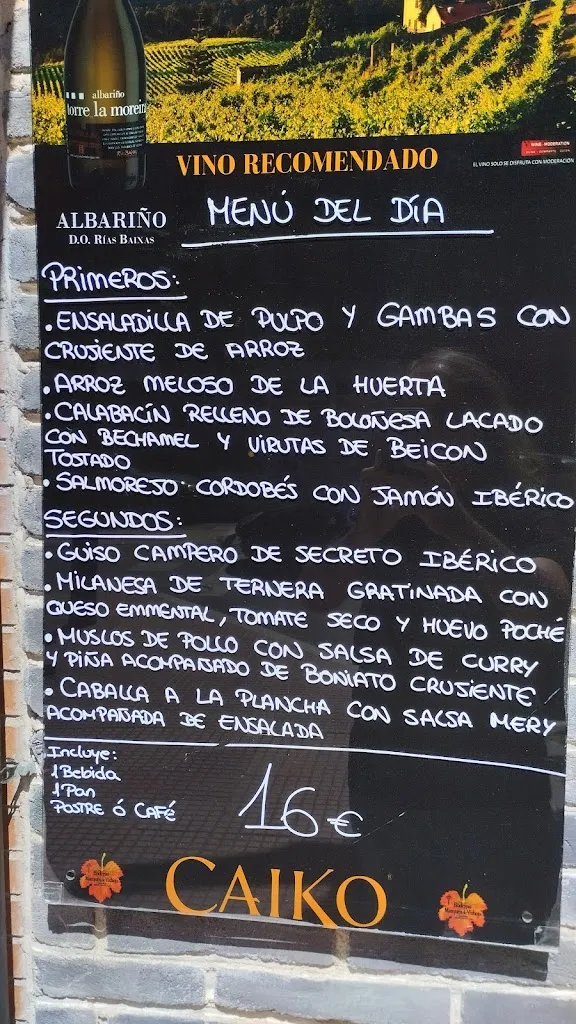 albariño
torre la moreira
VINO RECOMENDADO
WINE in MODERATION
EL VINO SOLO SE DISFRUTA CON MODERACIÓN
ALBARIÑO
D.O. RÍAS BAIXAS
MENÚ DEL DÍA
PRIMEROS:
• ENSALADILLA DE PULPO Y GAMBAS CON
CRUJIENTE DE ARROZ
• ARROZ MELOSO DE LA HUERTA
• CALABACÍN RELLENO DE BOLOÑESA LACADO
CON BECHAMEL Y VIRUTAS DE BEICON
TOSTADO
• SALMOREJO CORDOBÉS CON JAMÓN IBÉRICO
SEGUNDOS:
• GUISO CAMPERO DE SECRETO IBÉRICO
• MILANESA DE TERNERA GRATINADA CON
QUESO EMMENTAL, TOMATE SECO Y HUEVO POCHÉ
• MUSLOS DE POLLO CON SALSA DE CURRY
Y PIÑA ACOMPAÑADO DE BONIATO CRUJIENTE
• CABALLA A LA PLANCHA CON SALSA MERY
ACOMPAÑADA DE ENSALADA
Incluye:
1 Bebida
1 Pan
POSTRE Ó CAFÉ
16€
CAIKO